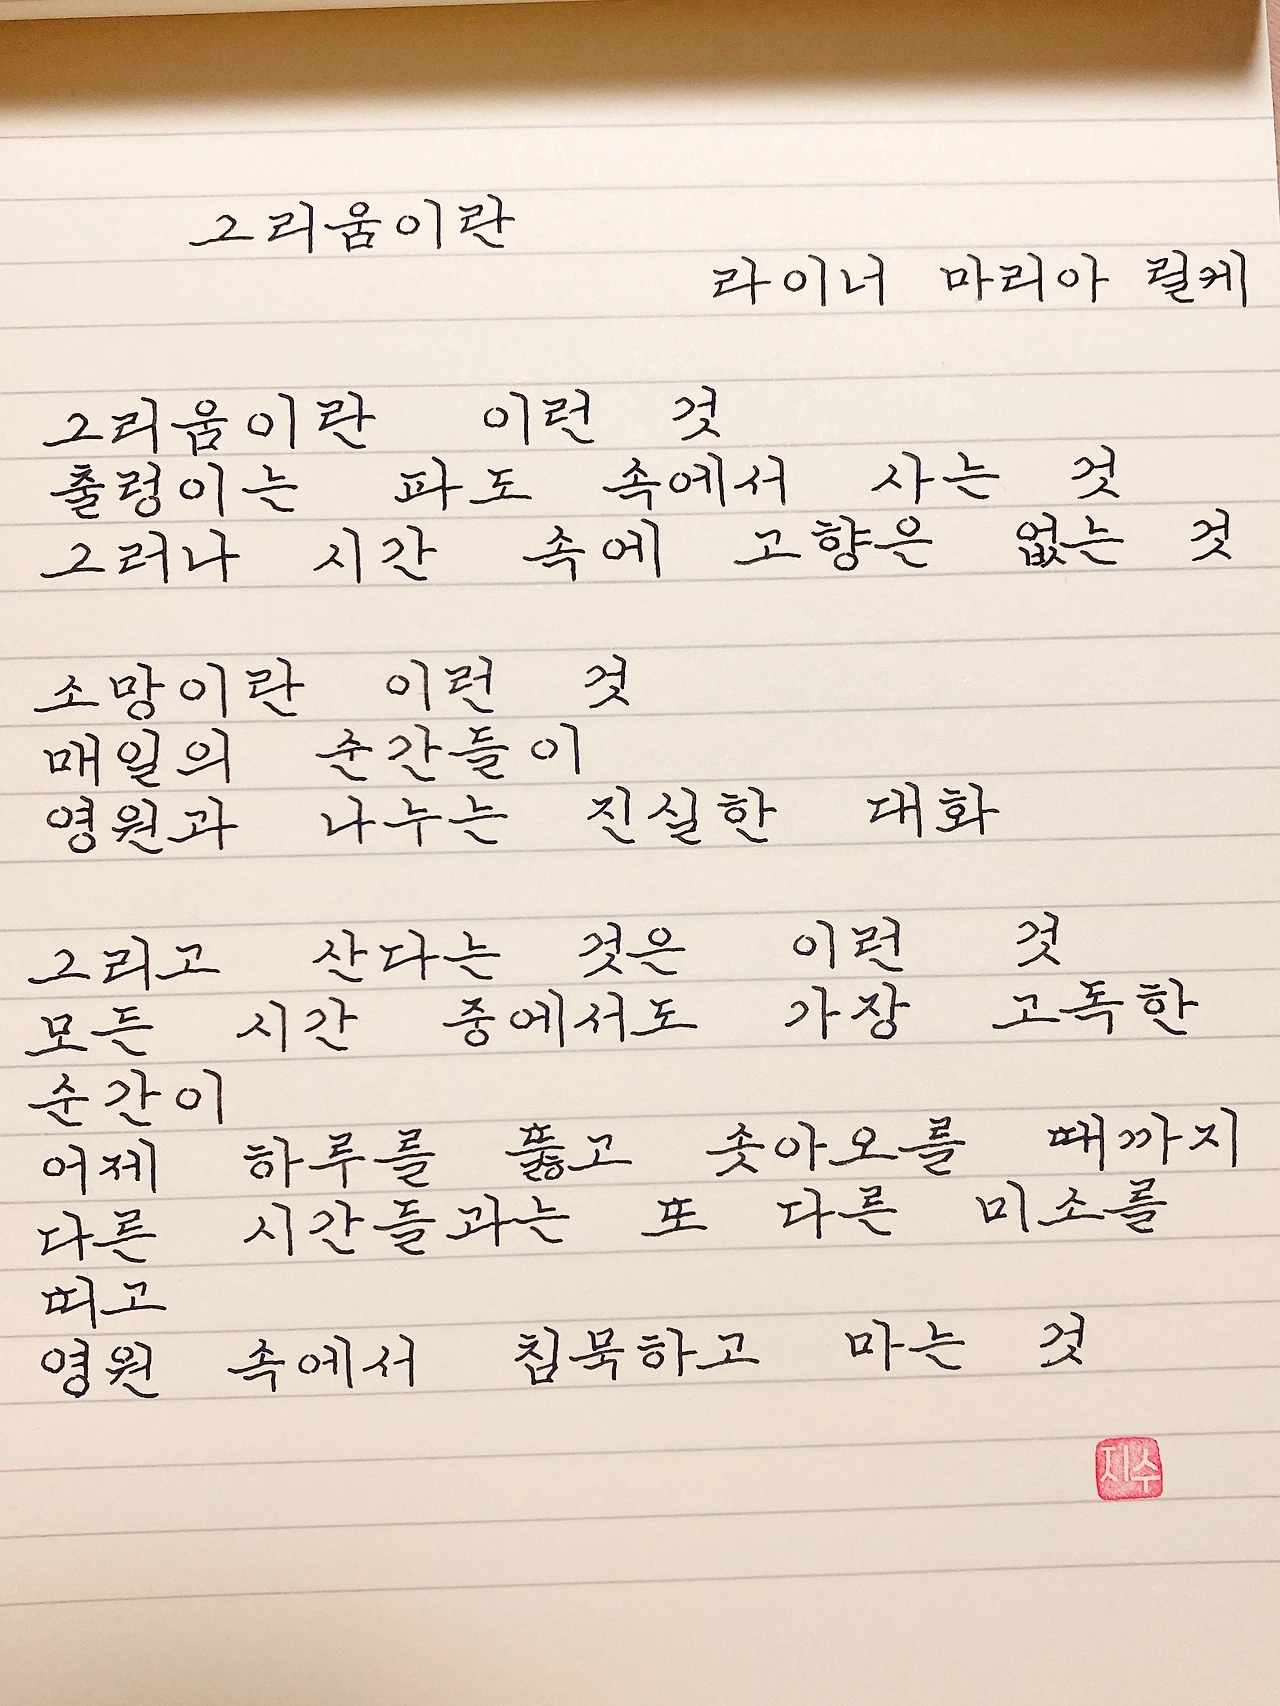 그리움이란
라이너 마리아 릴케
그리움이란 이런 것
출렁이는 파도 속에서 사는 것
그러나 시간 속에 고향은 없는 것
소망이란 이런 것
매일의 순간들이
영원과 나누는 진실한 대화
그리고 산다는 것은 이런 것
모든 시간 중에서도 가장 고독한
순간이
어제 하루를 뚫고 솟아오를 때까지
다른 시간들과는 또 다른 미소를
띠고
영원 속에서 침묵하고 마는 것
지수